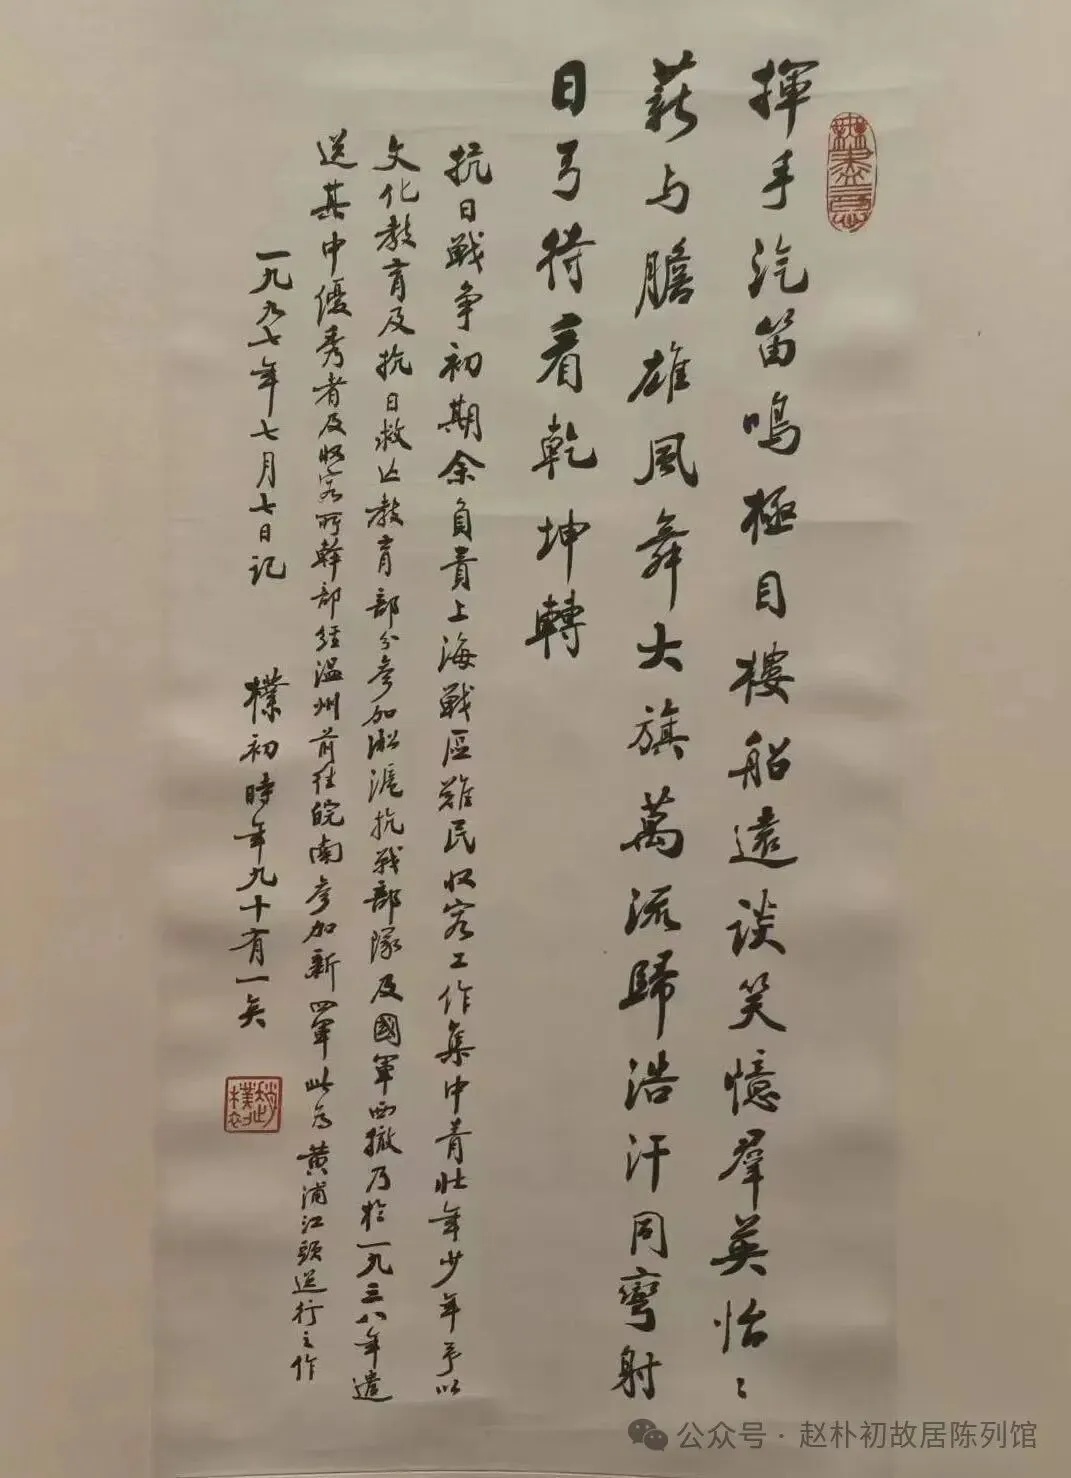 無盡意
揮手汽笛鳴極目樓船遠談笑憶羣英怡〻
薪与膽雄風舞大旗萬流歸浩汗同彎射
日弓待看乾坤轉
抗日戰争初期余負責上海戰區難民收容工作集中青壯年少年予以
文化教育及抗日救亡教育部分参加淞滬抗戰部隊及國軍西撤乃於一九三八年遣
送其中優秀者及收容所幹部经温州前往皖南参加新四軍此为黄浦江頭送行之作
一九九七年七月七日记 樸初時年九十有一矣
趙樸初
公众号 · 赵朴初故居陈列馆